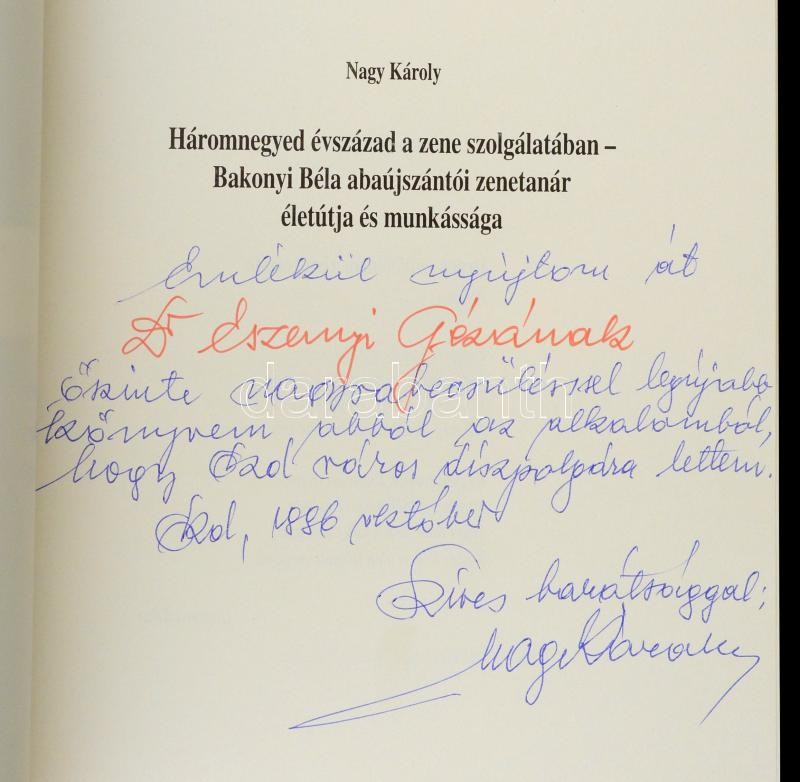 Nagy Károly
Háromnegyed évszázad a zene szolgálatában –
Bakonyi Béla abaújszántói zenetanár
életútja és munkássága
Emlékül nyújtom át
Dr Eszenyi Gézának
őszinte nagyrabecsüléssel legújabb
könyvem abból az alkalomból,
hogy Ózd város díszpolgára lettem.
Ózd, 1996 október
Szíves barátsággal:
Nagy Károly
darabanth